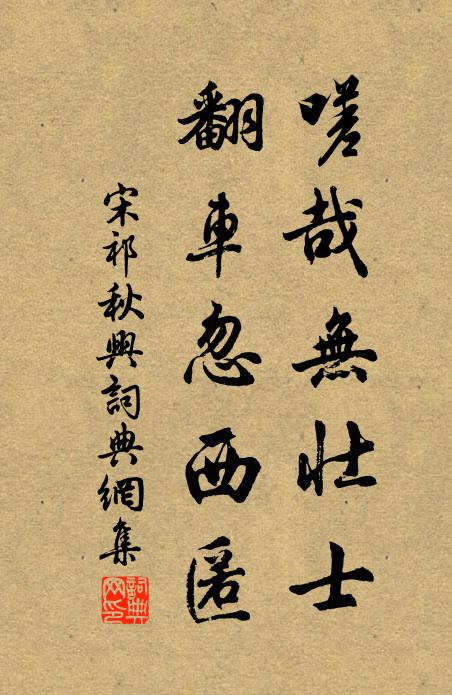 嗟哉無壮士
翻車忽西匿
宋祁秋興詞典網集
詞典网印